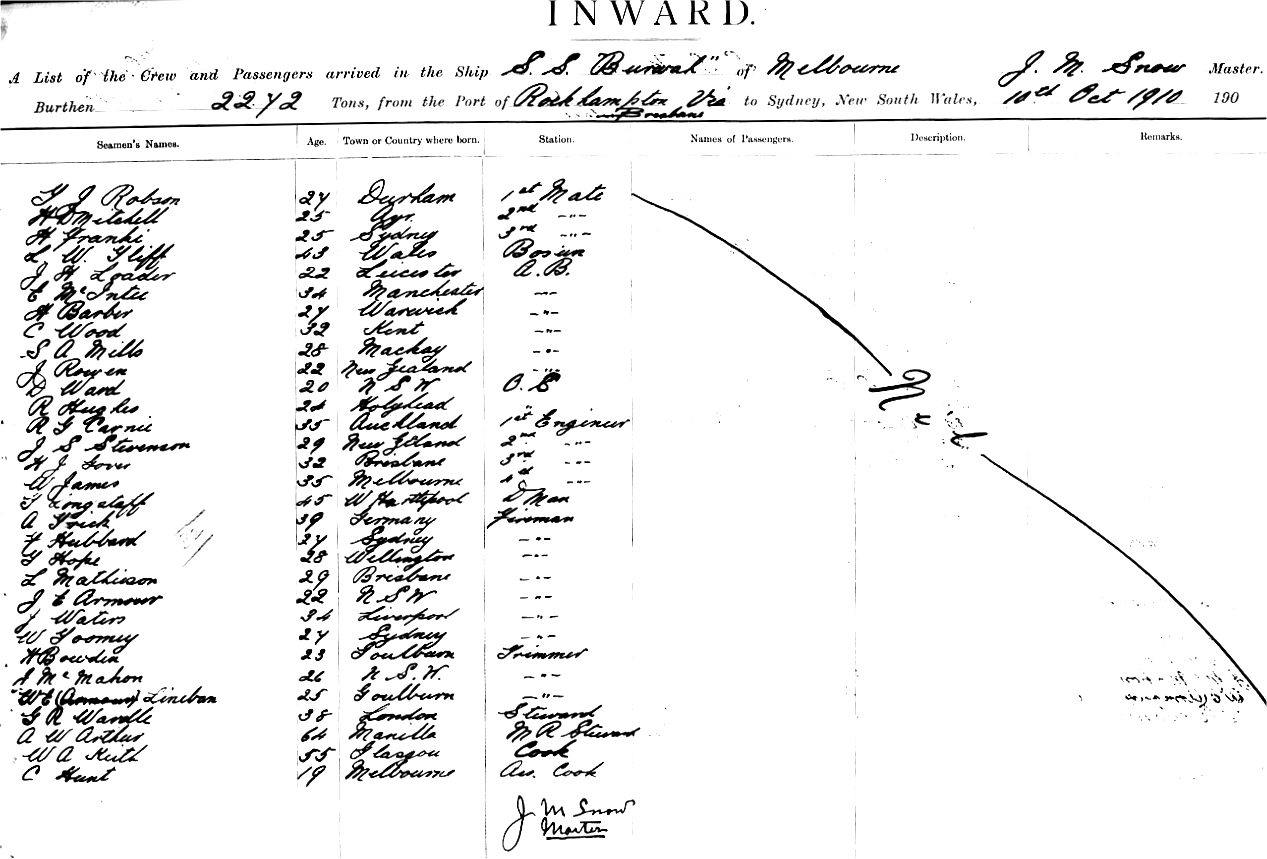 INWARD.
A List of the Crew and Passengers arrived in the Ship S. S. "Burwah" of Melbourne J. M. Snow Master.
Burthen 2272 Tons, from the Port of Rockhampton Via Brisbane to Sydney, New South Wales, 10th Oct 1910 190
Seamen's Names. Age. Town or Country where born. Station. Names of Passengers. Description. Remarks.
J Robson 27 Durham 1st Mate
H D Mitchell 25 Ayr 2nd -"-
H Franki 25 Sydney 3rd -"-
L. W. Iliff 43 Wales Bosun
J H Loader 22 Leicester A. B.
E McIntee 34 Manchester -"-
H Barber 27 Warwick -"-
C Wood 32 Kent -"-
S A Mills 28 Mackay -"-
J Rowen 22 New Zealand -"-
D Ward 20 N S W O. S
R Hughes 24 Holyhead "
R G Carnie 35 Auckland 1st Engineer
J S Stevenson 29 New Zeland 2nd -"-
H J Gover 32 Brisbane 3rd -"-
W James 35 Melbourne 4th -"-
T Longstaff 45 W Hartlepool D Man
A Frick 39 Germany Fireman
F Hubbard 27 Sydney -"-
T Hope 28 Wellington -"-
L Mathieson 29 Brisbane -"-
J E Armour 22 N S W -"-
J Waters 34 Liverpool -"-
W Toomey 27 Sydney -"-
H Bowdin 23 Goulburn Trimmer
J McMahon 26 N. S. W. -"-
W E (Armour) Lineban 25 Goulburn -"-
G R Wardle 38 London Steward
A W Arthur 64 Manilla M R Steward
W A Keith 55 Glasgow Cook
C Hunt 19 Melbourne Ass. Cook
Nil
J M Snow
Master